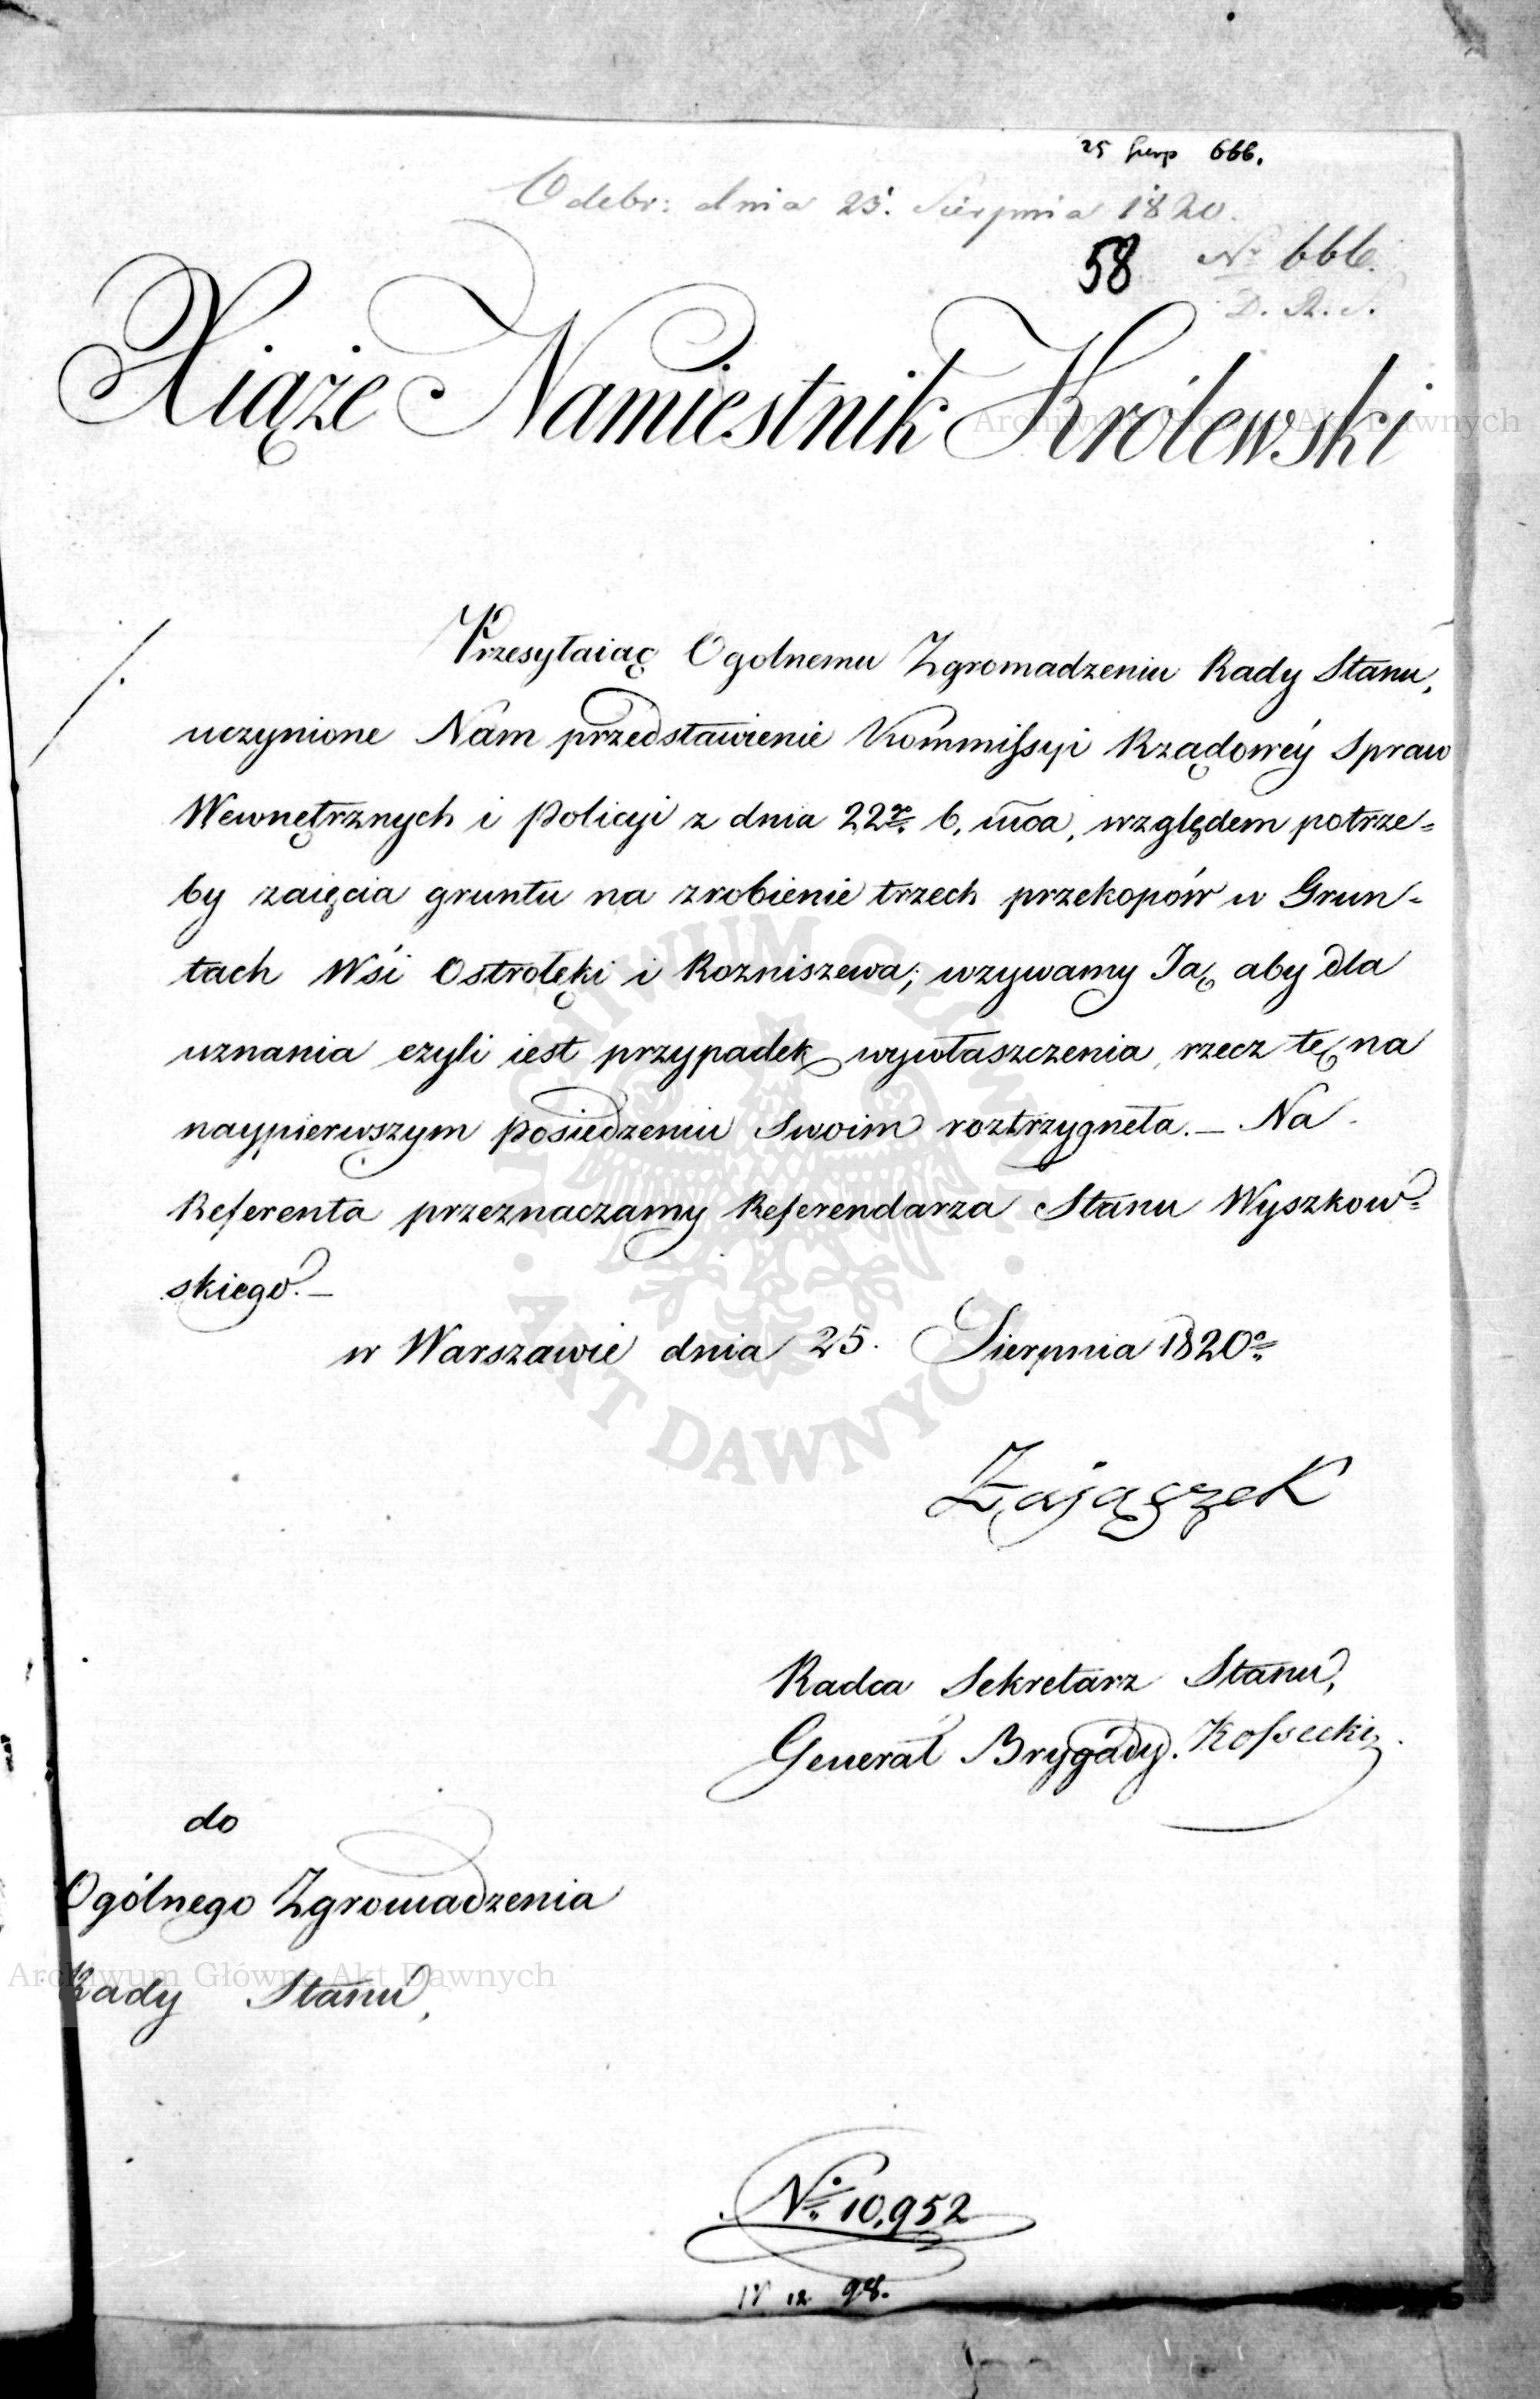 25 Sierp 666.
Odebr: dnia 25. Sierpnia 1820.
58 No 666.
D. R. S.
Xiąże Namiestnik Królewski
Przesyłaiąc Ogolnemu Zgromadzeniu Rady Stanu,
uczynione Nam przedstawienie Kommissyi Rządowéy Spraw
Wewnętrznych i Policyi z dnia 22go b. mca, względem potrze=
by zaięcia gruntu na zrobienie trzech przekopów w Grun=
tach Wsi Ostrołęki i Rozniszewa; wzywamy Ją, aby dla
uznania czyli iest przypadek wywłaszczenia, rzecz tę na
naypierwszym posiedzeniu Swoim roztrzygneła. — Na
Referenta przeznaczamy Referendarza Stanu Wyszkow=
skiego. —
w Warszawie dnia 25. Sierpnia 1820o
Zajączek
Radca Sekretarz Stanu,
Generał Brygady. Kossecki
do
Ogólnego Zgromadzenia
Rady Stanu,
No 10,952
98.
Archiwum Główne Akt Dawnych
ARCHIWUM GŁÓWNE
AKT DAWNYCH
Archiwum Główne Akt Dawnych